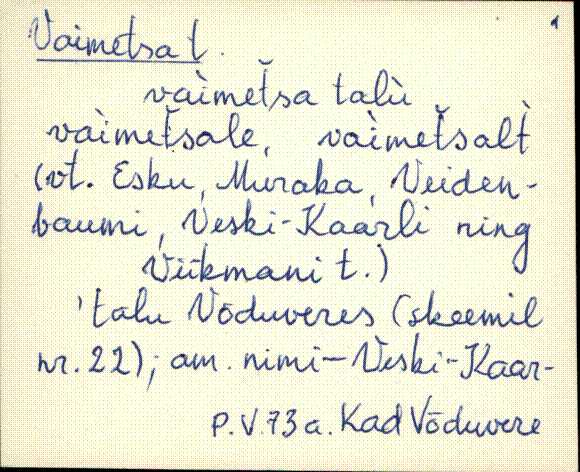 1
Vaimetsa t.
vaìmet̆sa talù
vaìmet̆sale, vaìmet̆salt̀
(vt. Esku, Muraka, Veiden-
baumi, Veski-Kaarli ning
Viikmani t.)
'talu Võduveres (skeemil
nr. 22); am. nimi – Veski-Kaar-
P.V.73 a. Kad Võduvere